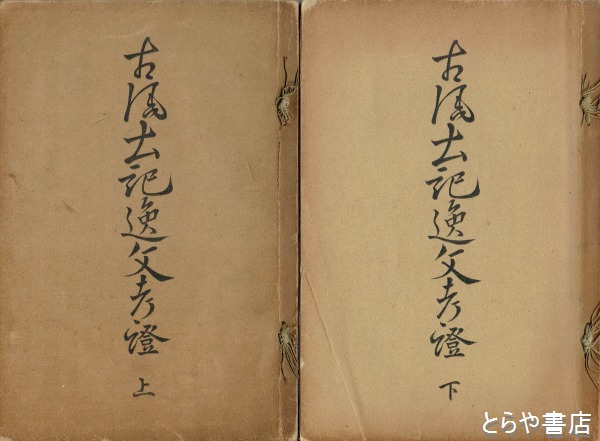 古風土記逸文考證
上
古風土記逸文考證
下
とらや書店